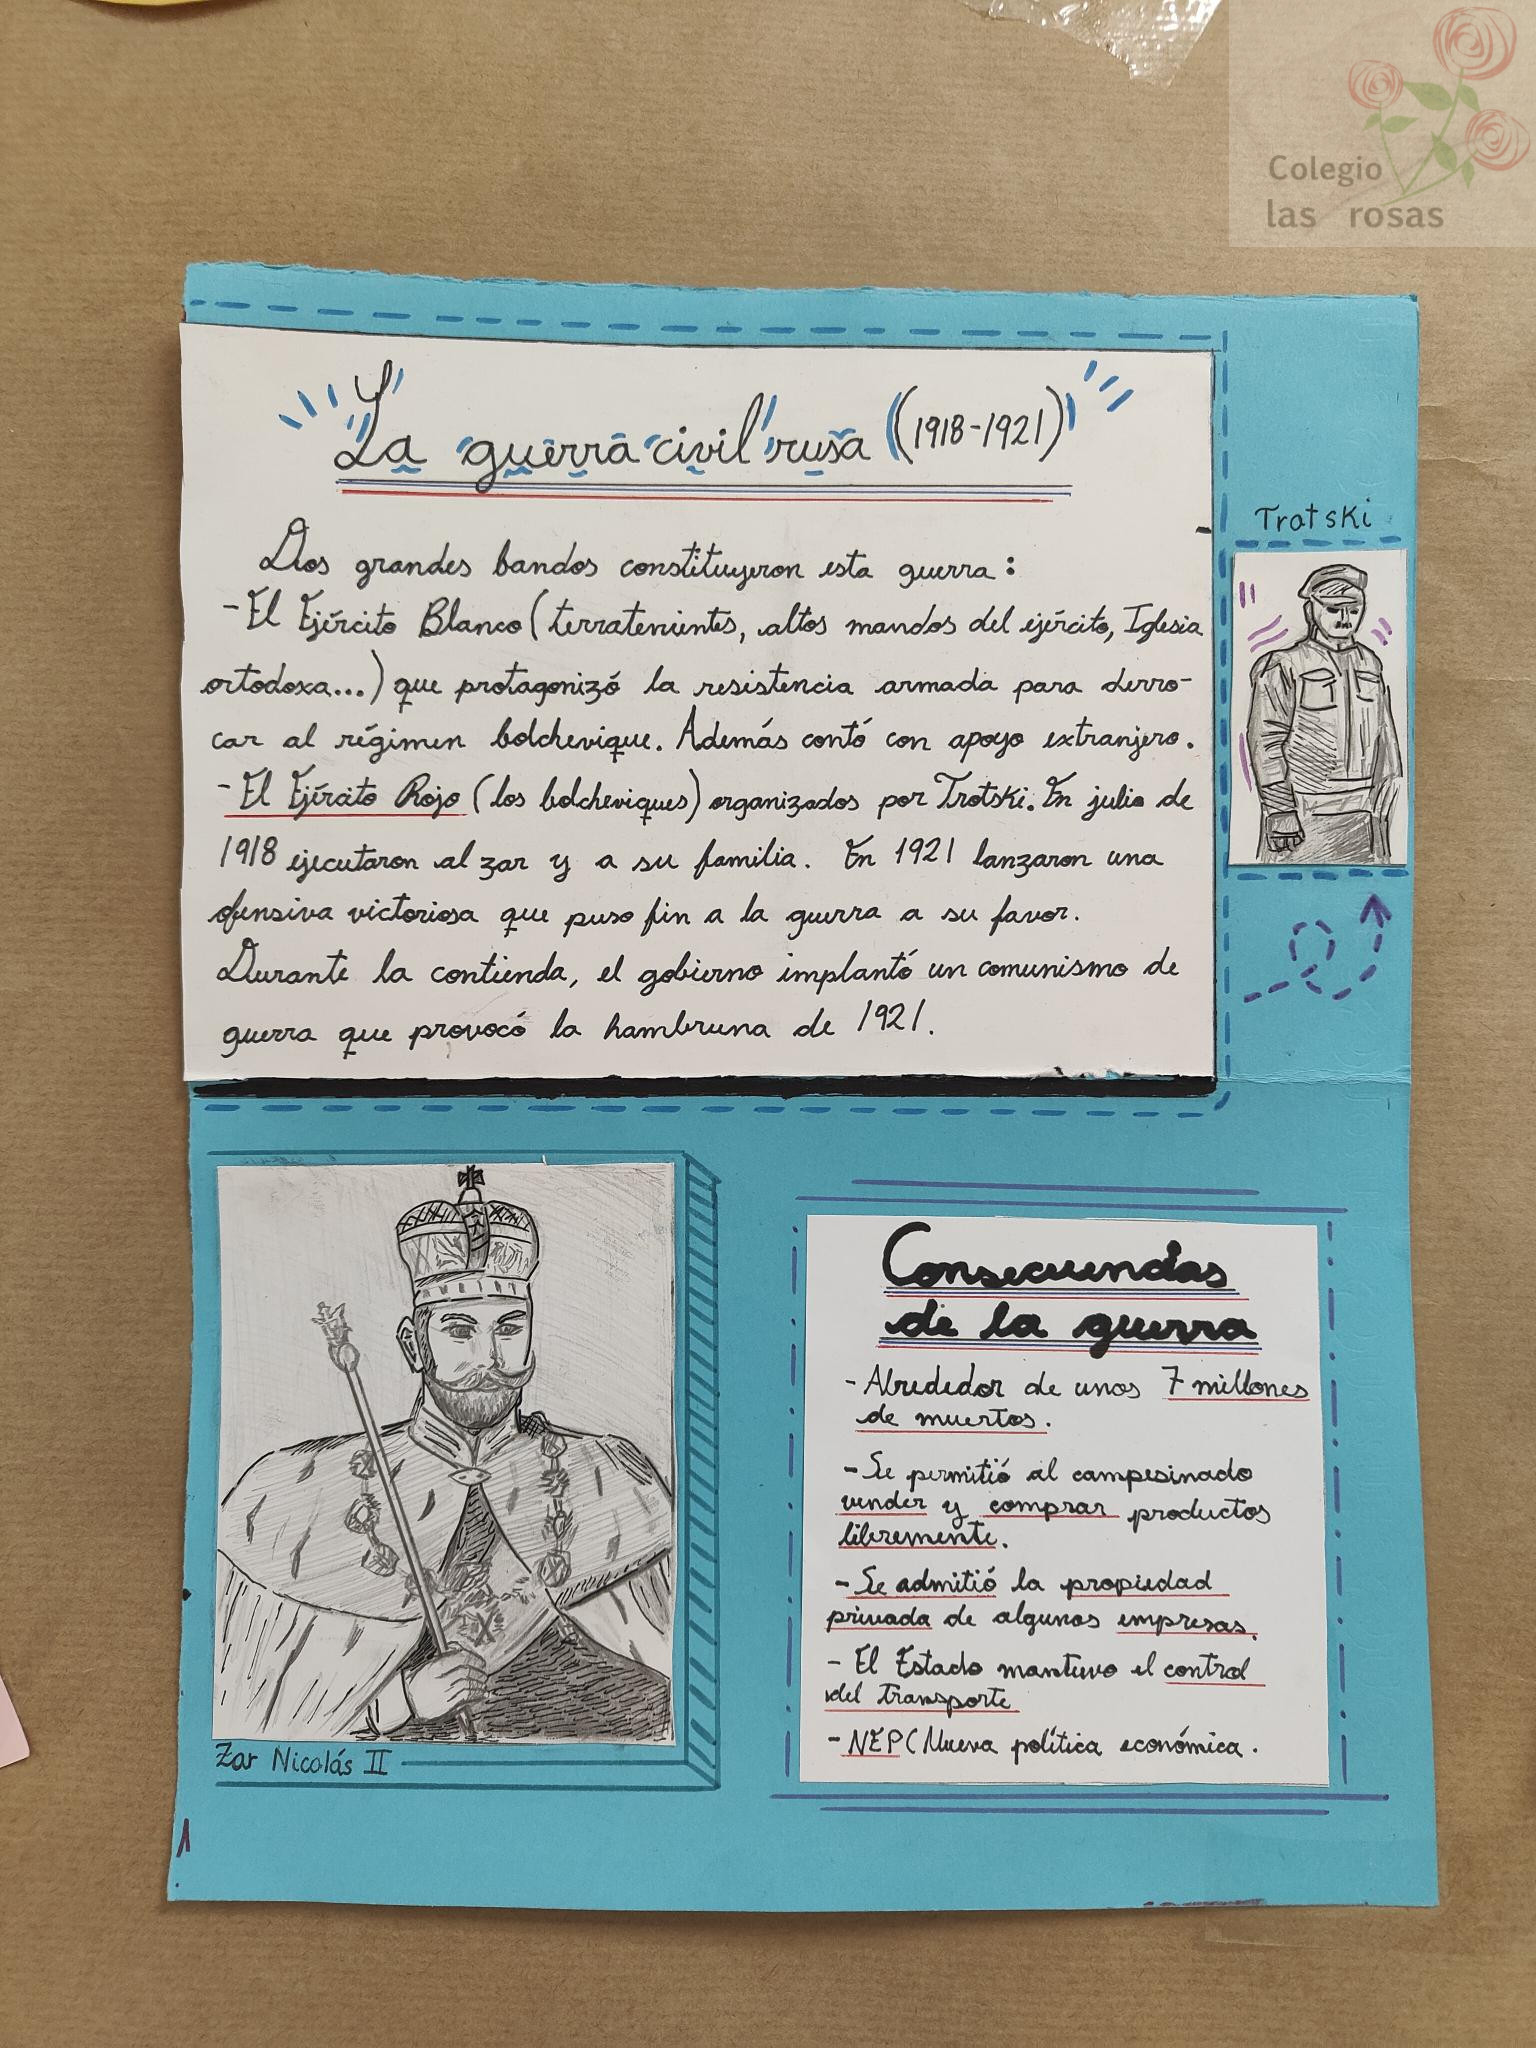 Colegio
las rosas
La guerra civil rusa (1918-1921)
Dos grandes bandos constituyeron esta guerra:
-El Ejército Blanco (terratenientes, altos mandos del ejército, Iglesia
ortodoxa...) que protagonizó la resistencia armada para derro-
car al régimen bolchevique. Además contó con apoyo extranjero.
-El Ejército Rojo (los bolcheviques) organizados por Trotski. En julio de
1918 ejecutaron al zar y a su familia. En 1921 lanzaron una
ofensiva victoriosa que puso fin a la guerra a su favor.
Durante la contienda, el gobierno implantó un comunismo de
guerra que provocó la hambruna de 1921.
Trotski
Zar Nicolás II
Consecuencias
de la guerra
-Alrededor de unos 7 millones
de muertos.
-Se permitió al campesinado
vender y comprar productos
libremente.
-Se admitió la propiedad
privada de algunas empresas.
- El Estado mantuvo el control
del transporte
-NEP(Nueva política económica.